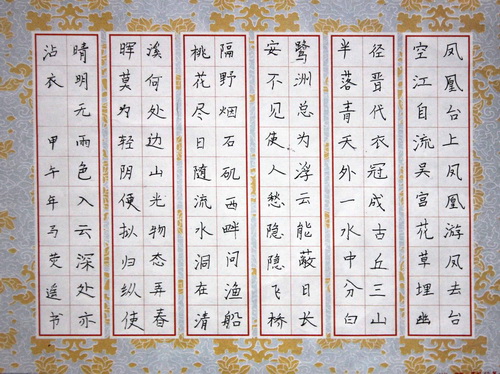 凤凰台上凤凰游凤去台
空江自流吴宫花草埋幽
径晋代衣冠成古丘三山
半落青天外一水中分白
鹭洲总为浮云能蔽日长
安不见使人愁隐隐飞桥
隔野烟石矶西畔问渔船
桃花尽日随流水洞在清
溪何处边山光物态弄春
晖莫为轻阴便拟归纵使
晴明无雨色入云深处亦
沾衣 甲午年马荧书